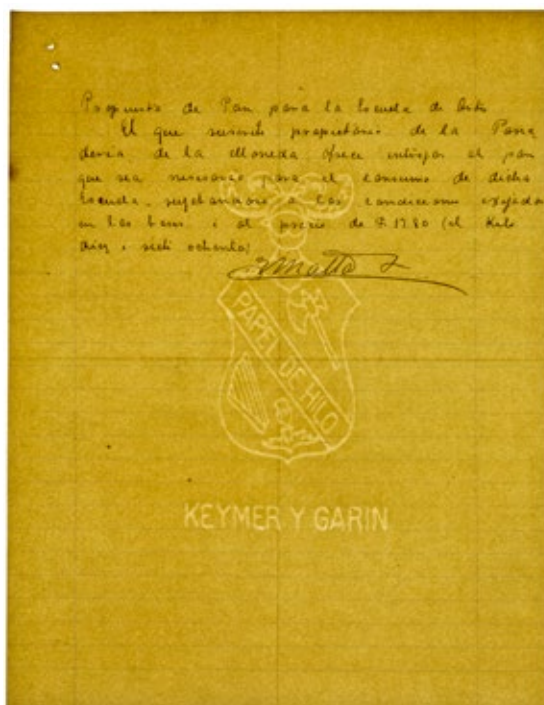 Propuesta de Pan para la Escuela de Artes
El que suscribe propietario de la Pana
deria de la Moneda ofrece entregar el pan
que sea necesario para el consumo de dicha
Escuela, sujetandose a las condiciones exijidas
en las bases i al precio de $ 17.80 (el Kilo
diez i siete ochenta)
PAPEL DE HILO
KEYMER Y GARIN